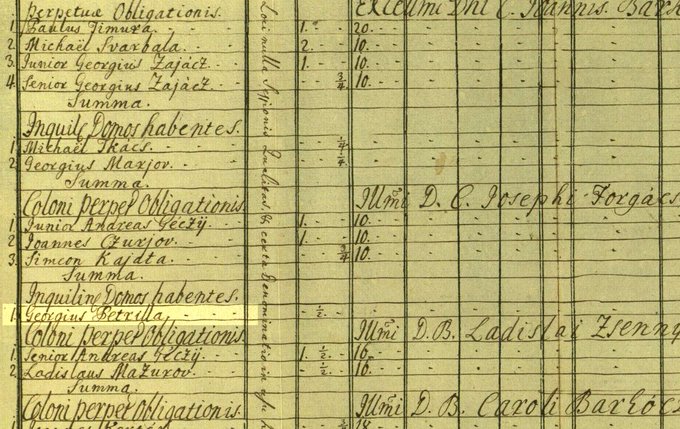 Perpetuæ Obligationis. Excellmi Dni C. Ioannis Barkó
1. Paulus Timura. 1. 20.
2. Michaël Svarbala. 2. 10.
3. Junior Georgius Zajácz 1. 10.
4. Senior Georgius Zajácz. 3/4 10.
Summa.
Inquili: Domos habentes.
1. Michaël Tkács. 1/4
2. Georgius Marjov. 1/4
Summa.
Coloni perpet Obligationis. Illmi D. C. Iosephi Forgács
1. Junior Andreas Géczÿ 1. 10.
2. Ioannes Czurjov. 1. 10.
3. Simeon Kajdta. 3/4 10.
Summa.
Inquilin: Domos habentes.
1. Georgius Petrilla. 1/2
Coloni perpet Obligationis. Illmi D. B. Ladislai Zsenny
1. Senior Andreas Géczÿ. 1. 1/2 16.
2. Ladislaus Mazurov. 1/2 16.
Summa.
Coloni perpet Obligationis. Illmi D. B. Caroli Barkócz
Loci nulla Sessionis Qualitas, & certa Denominatio in usu